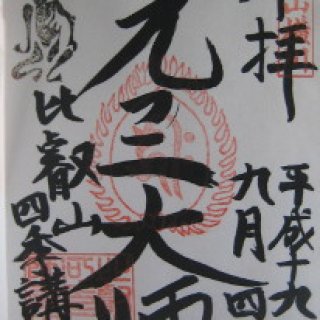 拝
平成十九
九月四
元三大師
比叡山
四季講